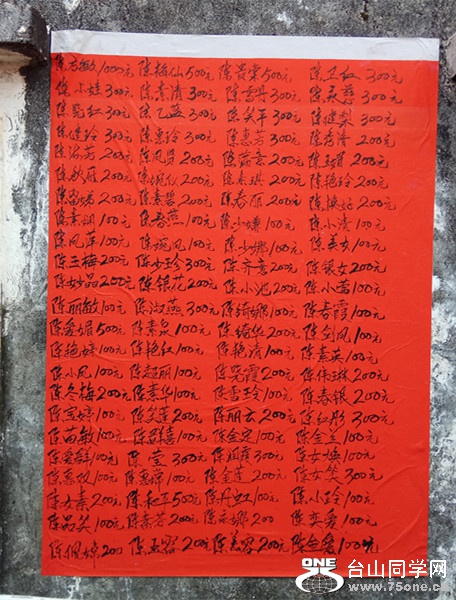 陈杏敏1000元 陈梅仙500元 陈贵棠500元 陈卫红300元
陈小娃300元 陈素清300元 陈雪丹300元 陈灵慈300元
陈晃红300元 陈乙蓝300元 陈笑平300元 陈健梨300元
陈健玲300元 陈惠玲300元 陈惠芳300元 陈秀清200元
陈 芳200元 陈凤 200元 陈 意200元 陈 200元
陈 200元 陈婉仪200元 陈素琪200元 陈艳玲200元
陈 200元 陈素碧200元 陈春丽200元 陈焕 200元
陈素娟100元 陈春燕100元 陈少嫌100元 陈小清100元
陈凤萍100元 陈婉凤100元 陈少娜100元 陈美女100元
陈玉梅200元 陈少珍300元 陈齐意200元 陈银女200元
陈妙品200元 陈银花200元 陈小池200元 陈小茵100元
陈丽敏100元 陈淑燕300元 陈绮娜100元 陈春霞100元
陈爱媚500元 陈素泉100元 陈绮华200元 陈剑凤100元
陈艳妹100元 陈艳红100元 陈艳清100元 陈素英100元
陈小凤100元 陈超丽100元 陈晃霞200元 陈伟琳200元
陈冬梅200元 陈素华100元 陈雪玲100元 陈春银200元
陈宝婷100元 陈笑莲200元 陈丽云200元 陈红彤300元
陈 敏100元 陈群喜100元 陈金定100元 陈金兰100元
陈爱群100元 陈莹300元 陈 300元 陈女焕100元
陈惠仪100元 陈惠 100元 陈金莲200元 陈女笑300元
陈女素200元 陈和平500元 陈丹虹100元 陈小玲100元
陈 笑100元 陈素芳200元 陈 娜200 陈奕爱100元
陈佩婷200 陈玉容200元 陈美容200元 陈金爱100元
ONE 台山同学网
www.75one.com